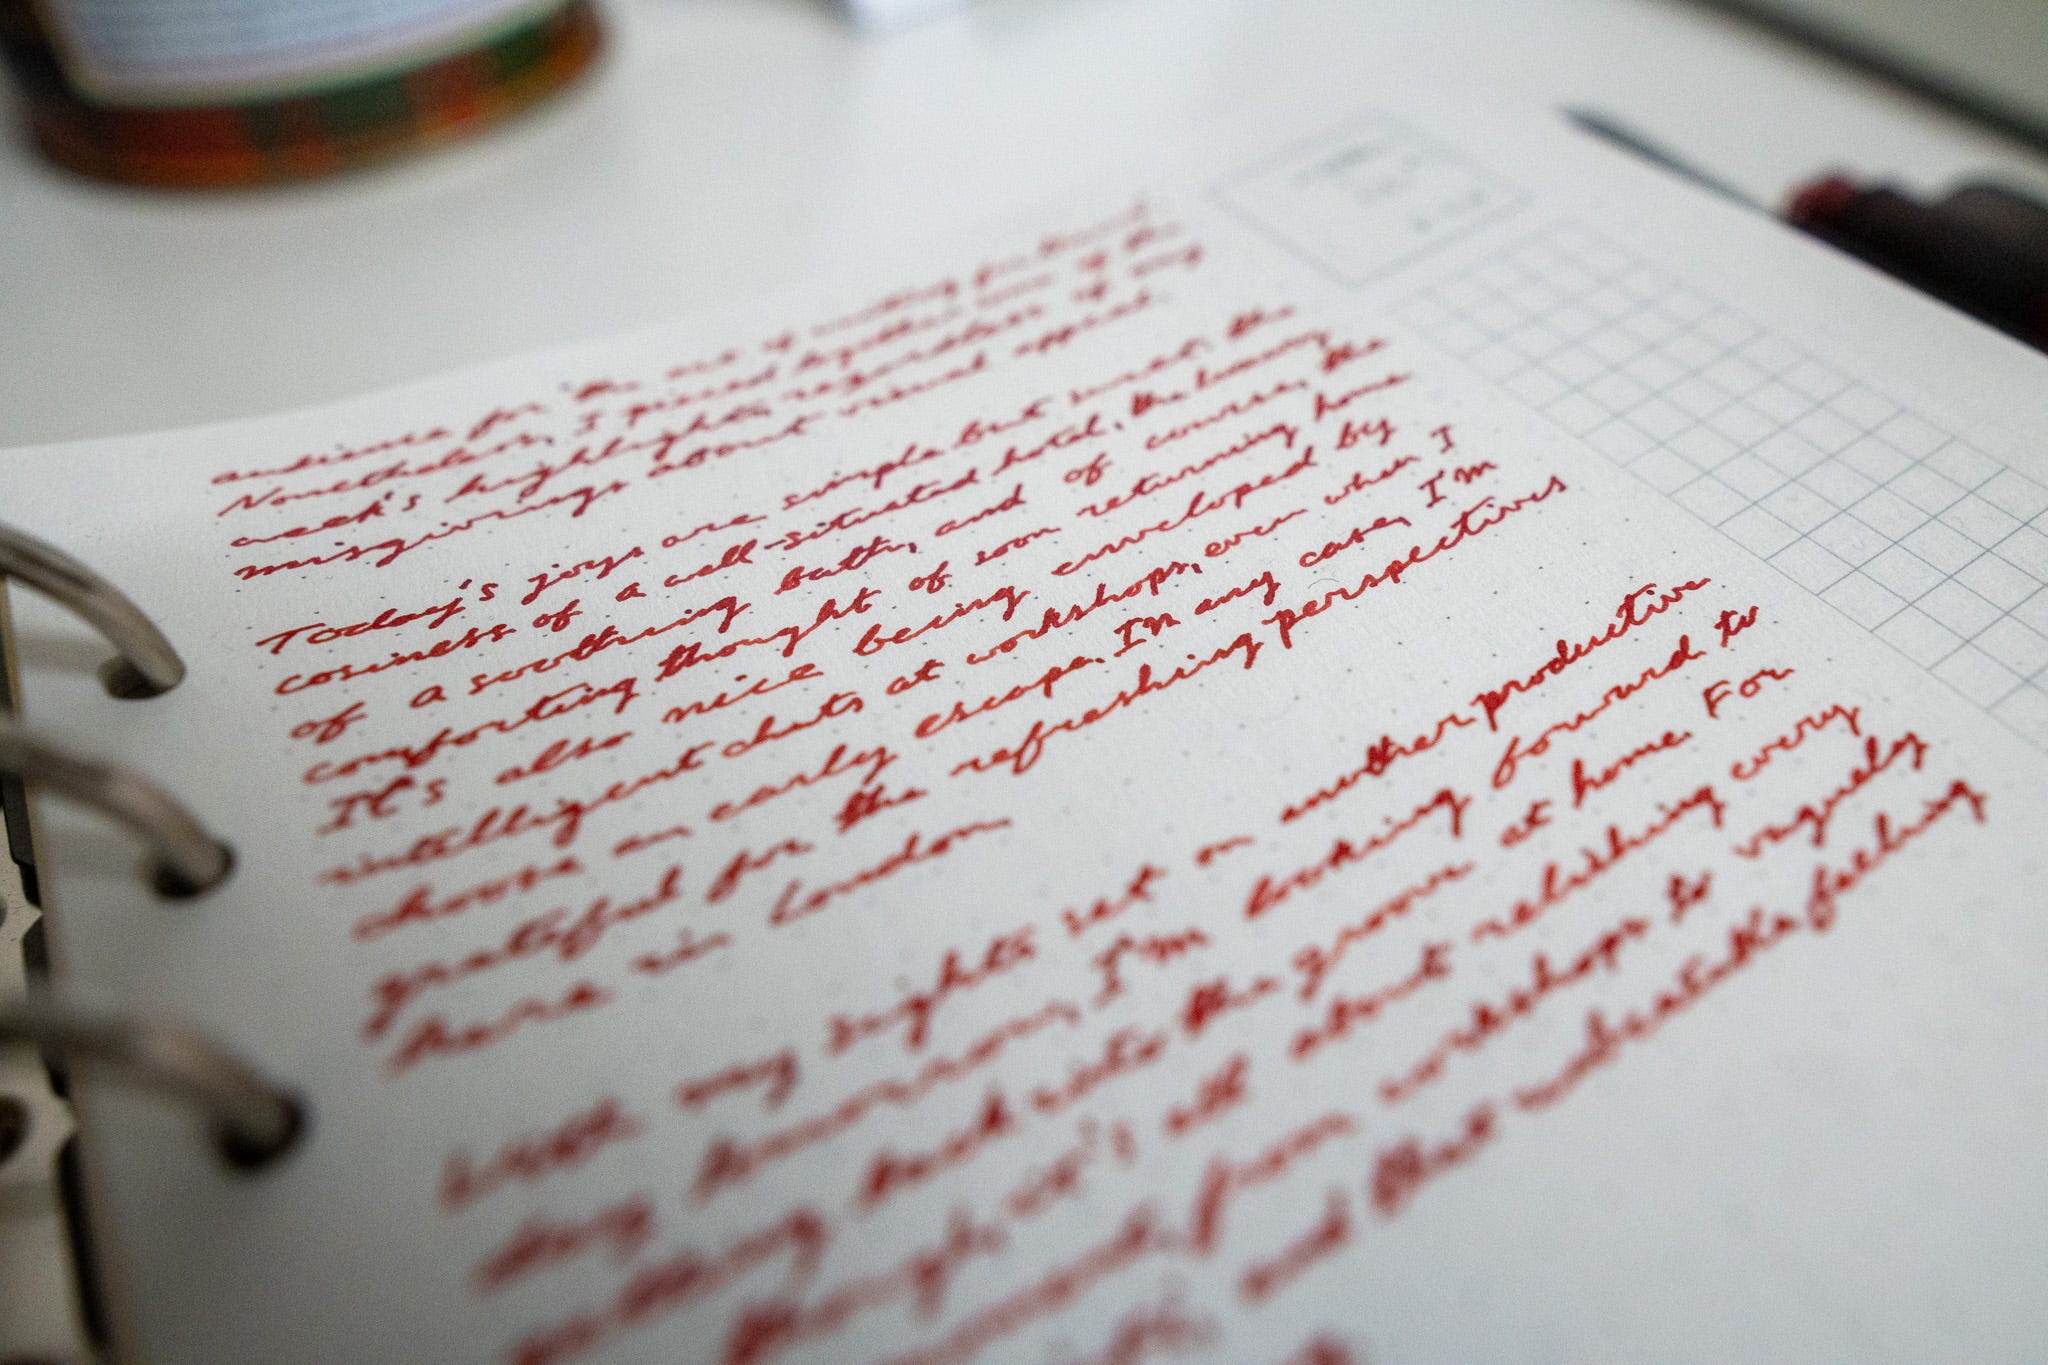 audience for, the use of writing for
Nonetheless, I pieced together some of the
week's highlights regardless of my
misgivings about visual appeal.
Today's joys are simple but sweet: the
cosiness of a well-situated hotel, the luxury
of a soothing bath, and of course, the
comforting thought of soon returning home
It's also nice being enveloped by
intelligent chats at workshops, even when I
choose an early escape. In any case, I'm
grateful for the refreshing perspectives
here in London.
With my sights set on another productive
day tomorrow, I'm looking forward to
getting back into the groove at home. For
though, it's all about relishing every
moment, from workshops to vaguely
and that unmistakable feeling